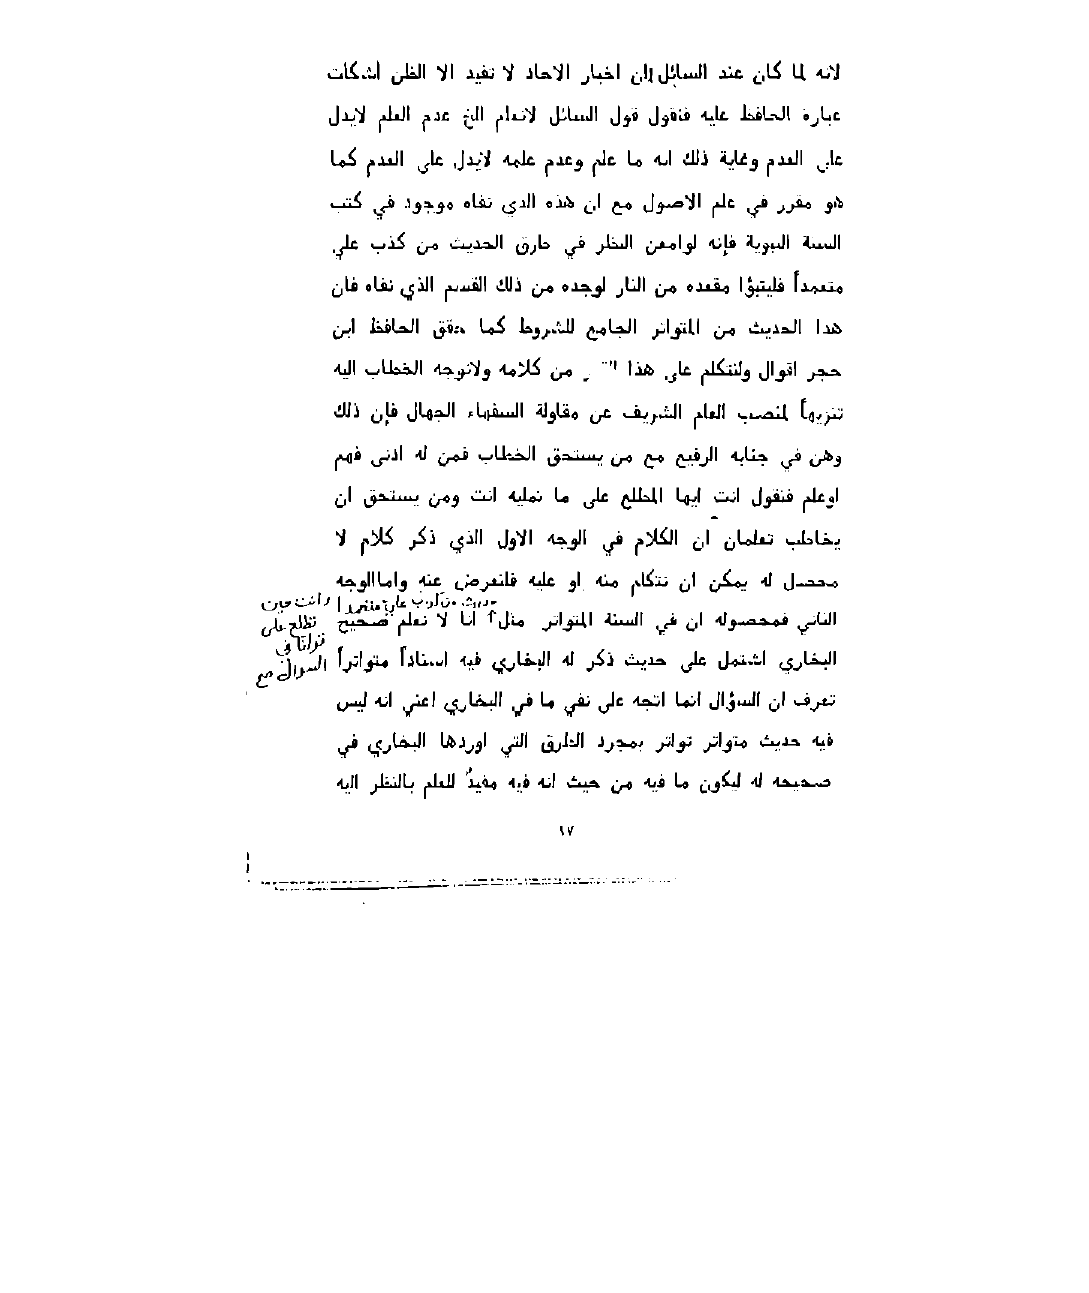 لانه لما كان عند السائل ان اخبار الاحاد لا تفيد الا الظن أشكلت
عبارة الحافظ عليه فنقول قول السائل لانعلم الخ عدم العلم لايدل
على العدم وغاية ذلك انه ما علم وعدم علمه لايدل على العدم كما
هو مقرر في علم الاصول مع ان هذه الذي نفاه موجود في كتب
السنة النبوية فإنه لوامعن النظر في طرق الحديث من كذب علي
متعمداً فليتبؤا مقعده من النار لوجده من ذلك القسم الذي نفاه فان
هذا الحديث من المتواتر الجامع للشروط كما حقق الحافظ ابن
حجر اقوال ولنتكلم على هذا من كلامه ولانوجه الخطاب اليه
تنزيهاً لمنصب العلم الشريف عن مقاولة السفهاء الجهال فإن ذلك
وهن في جنابه الرفيع مع من يستحق الخطاب فمن له ادنى فهم
اوعلم فنقول انت ايها المطلع على ما نمليه انت ومن يستحق ان
يخاطب تعلمان ان الكلام في الوجه الاول الذي ذكر كلام لا
محصل له يمكن ان نتكلم منه او عليه فلنعرض عنه واماالوجه
حديث من كذب علي متعمدا وانت حين
الثاني فمحصوله ان في السنة المتواتر مثل انا لا نعلم صحيح
تطلع على
قولنا في
البخاري اشتمل على حديث ذكر له البخاري فيه اسناداً متواتراً
السؤال مع
تعرف ان السؤال انما اتجه على نفي ما في البخاري اعني انه ليس
فيه حديث متواتر تواتر بمجرد الطرق التي اوردها البخاري في
صحيحه له ليكون ما فيه من حيث انه فيه مفيدٌ للعلم بالنظر اليه
١٧